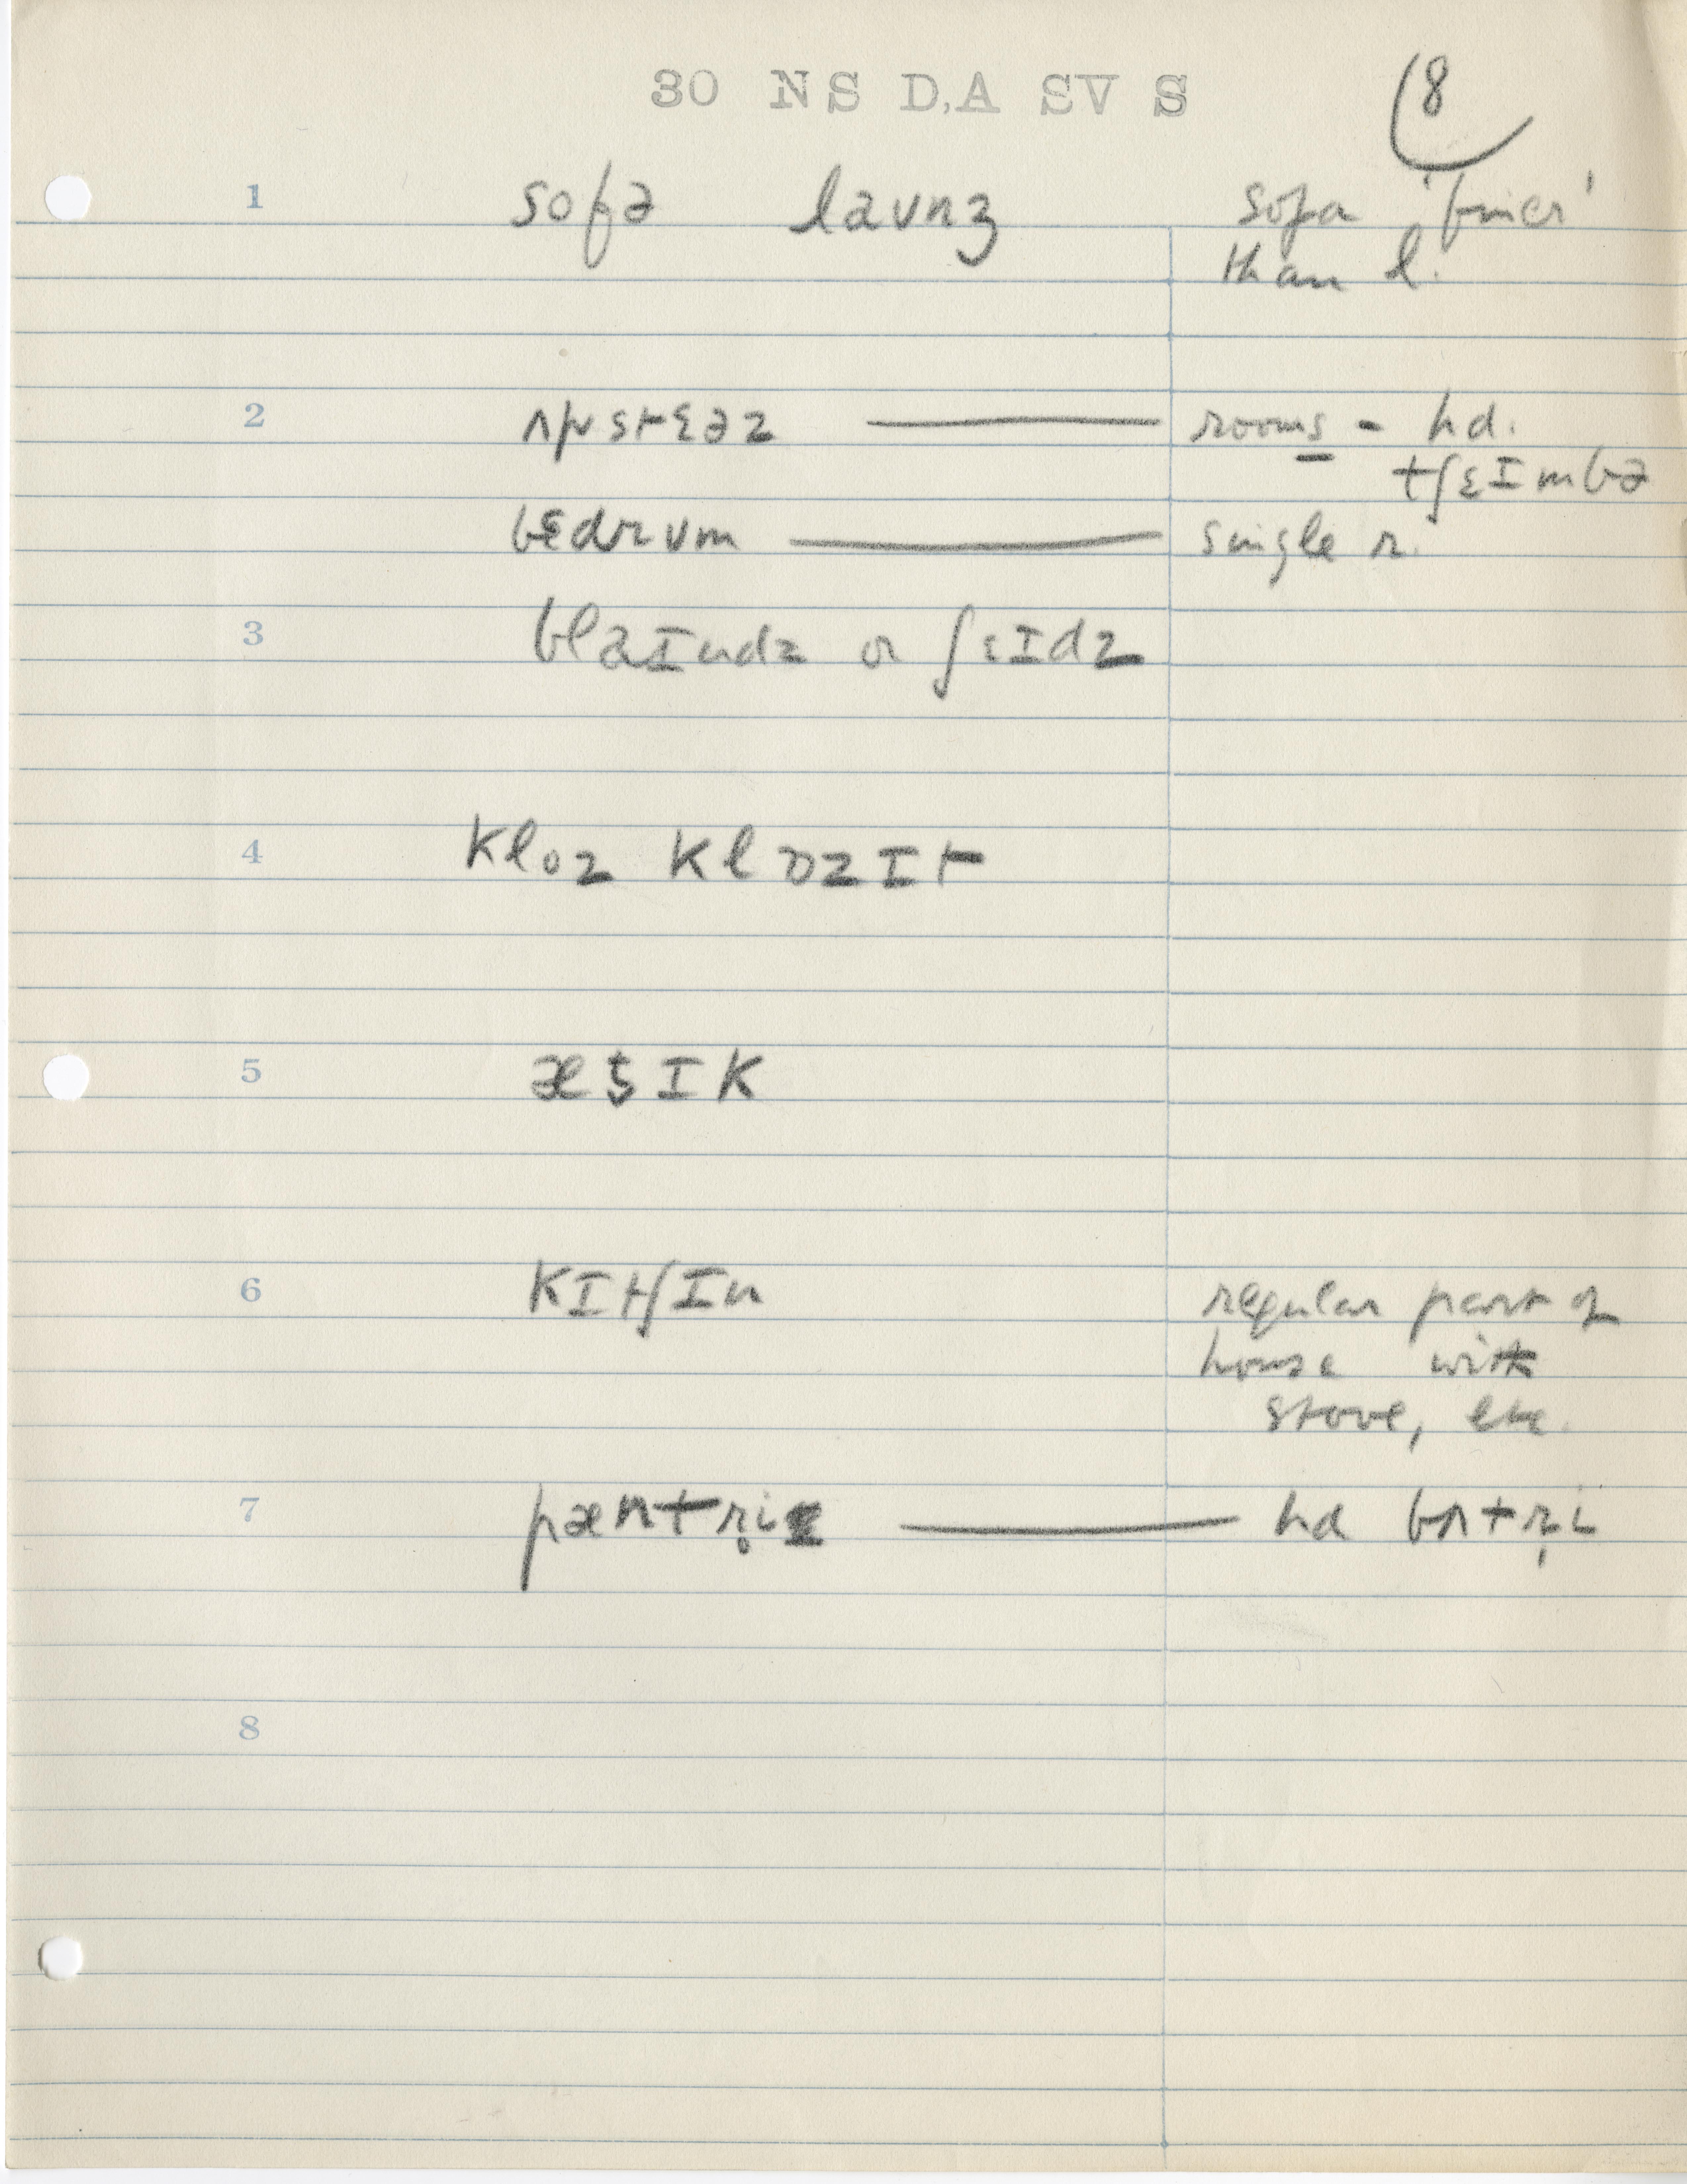 30 NS D,A SV S
8
1 sofə laʊnʒ sofa 'finer'
than l.
2 ʌpstɛəz — rooms - hd.
tʃɛɪmbə
bɛdrʊm — single r.
3 blaɪndz or ʃɛɪdz
4 kloz klɒzɪt
5 æt̬ɪk
6 kɪtʃɪn regular part of
house with
stove, etc.
7 pæntr̥i — hd bʌtr̩i
8